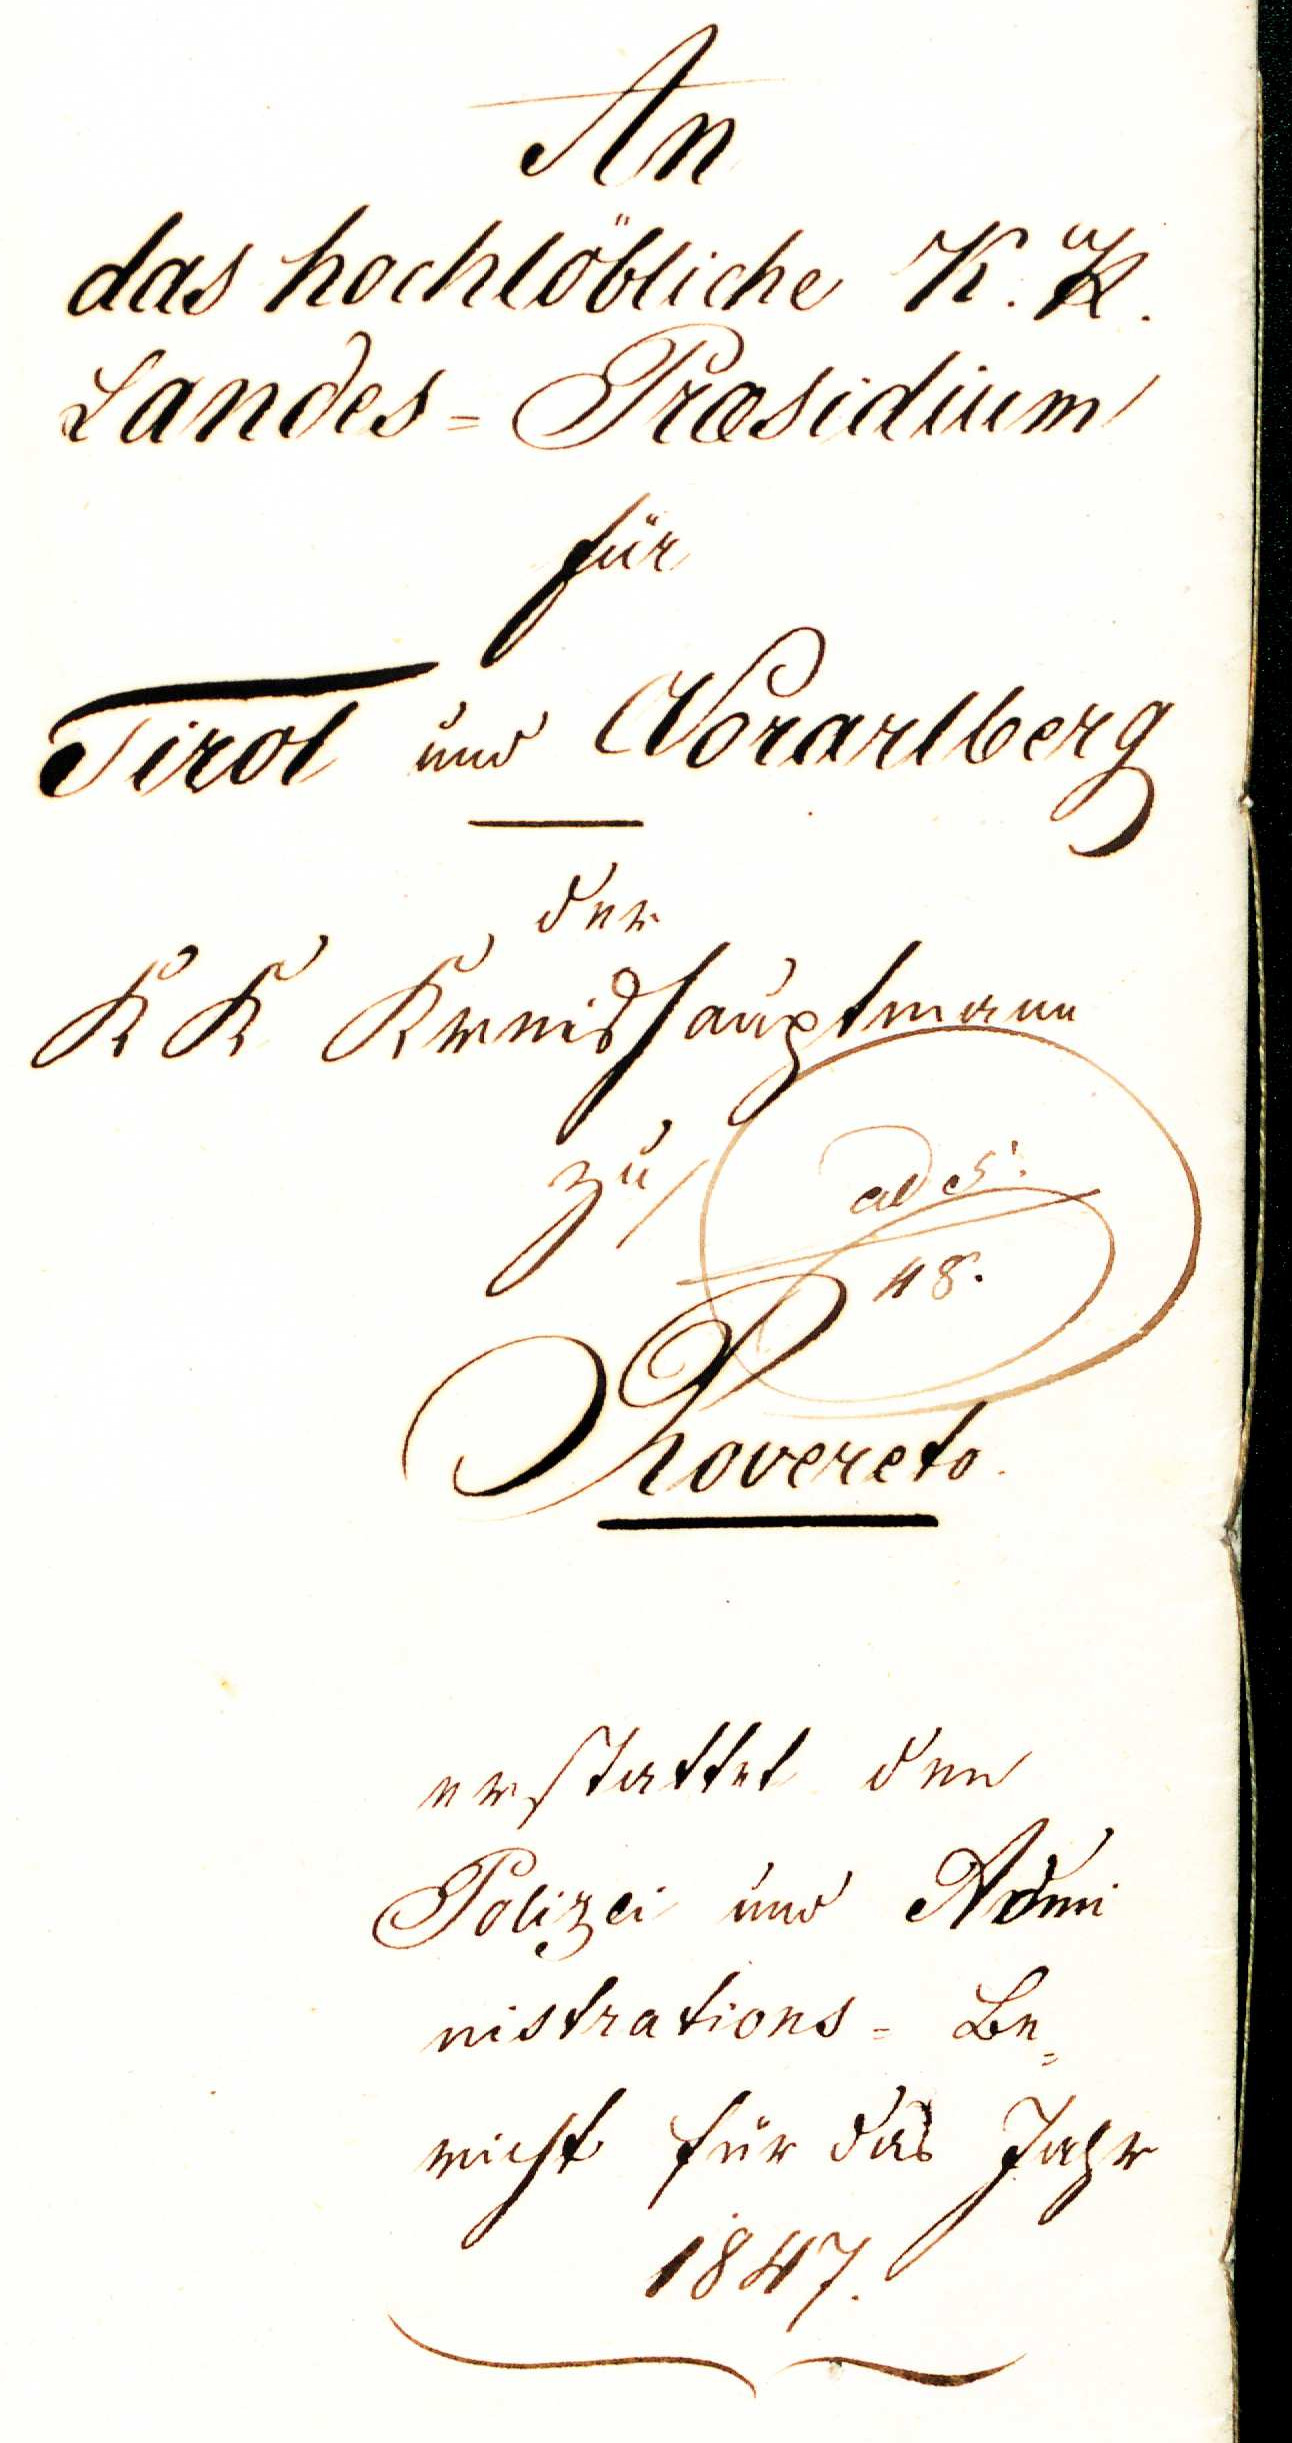 An
das hochlöbliche K. K.
Landes=Præsidium
für
Tirol und Vorarlberg
der
KK Kreishauptmann
zu
ad 5.
48.
Rovereto.
erstattet den
Polizei und Admi
nistrations=Be=
richt für das Jahr
1847.